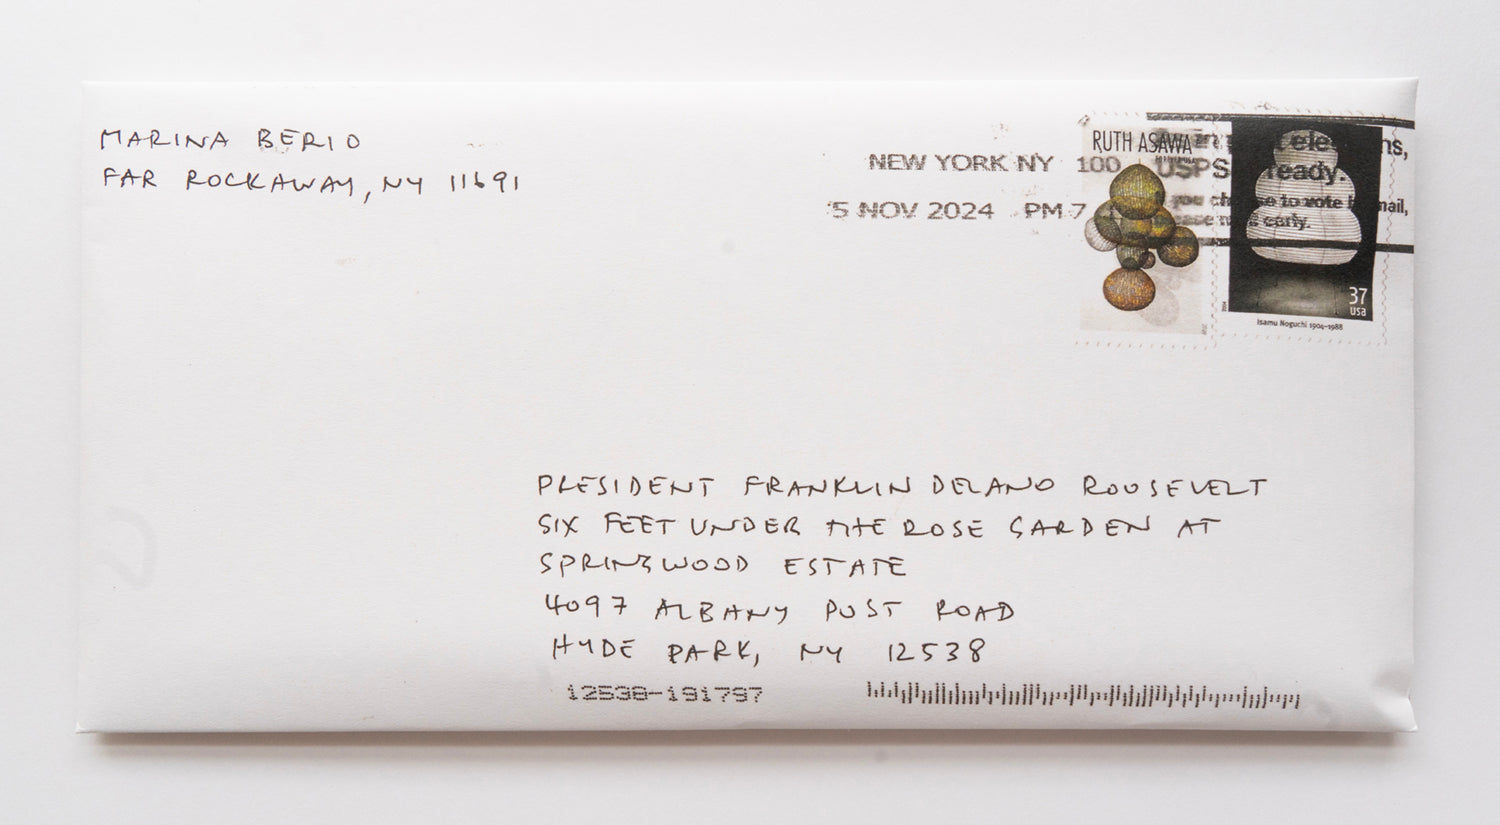 MARINA BERIO
FAR ROCKAWAY, NY 11691
NEW YORK NY 100
5 NOV 2024 PM 7
RUTH ASAWA
USPS ready.
to vote mail,
early.
37
usa
Isamu Noguchi 1904-1988
PRESIDENT FRANKLIN DELANO ROOSEVELT
SIX FEET UNDER THE ROSE GARDEN AT
SPRINGWOOD ESTATE
4097 ALBANY POST ROAD
HYDE PARK, NY 12538
12538-191797